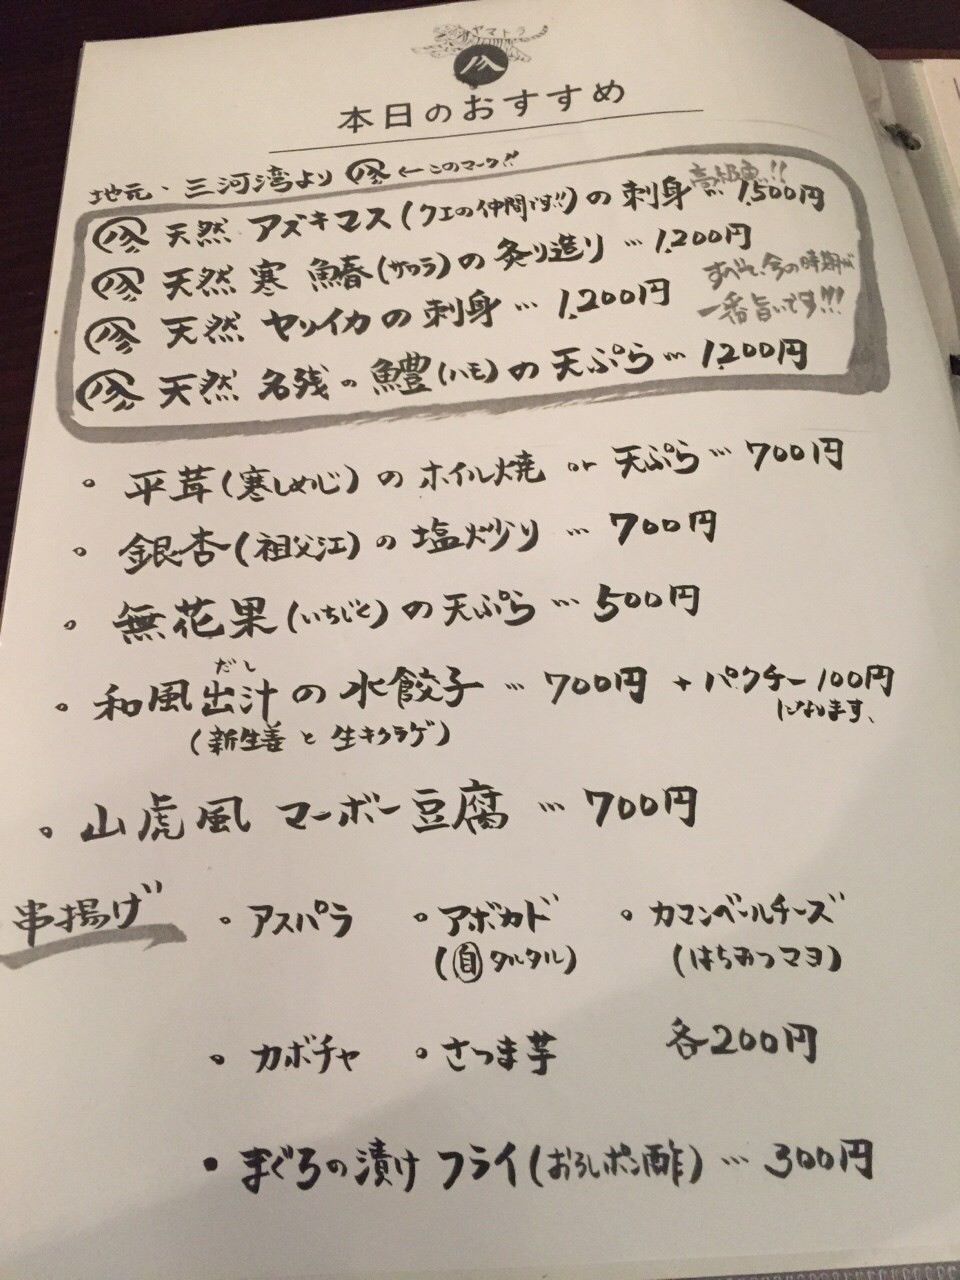 ヤマトラ
本日のおすすめ
地元・三河湾より ←このマーク!!
天然 アズキマス(クエの仲間です!!)の刺身 … 1,500円
天然 寒 鰆(サワラ)の炙り造り … 1,200円
すべて、今の時期が
一番旨いです!!!
天然 ヤリイカの刺身 … 1,200円
天然 名残の鱧(ハモ)の天ぷら … 1,200円
・平茸(寒しめじ)のホイル焼 or 天ぷら … 700円
・銀杏(祖父江)の塩炒り … 700円
・無花果(いちじく)の天ぷら … 500円
だし
・和風出汁の水餃子 … 700円 + パクチー100円
になります、
(新生姜と生キクラゲ)
・山虎風 マーボー豆腐 … 700円
串揚げ ・アスパラ ・アボカド ・カマンベールチーズ
(自タルタル) (はちみつマヨ)
・カボチャ ・さつま芋 各200円
・まぐろの漬け フライ(おろしポン酢) … 300円